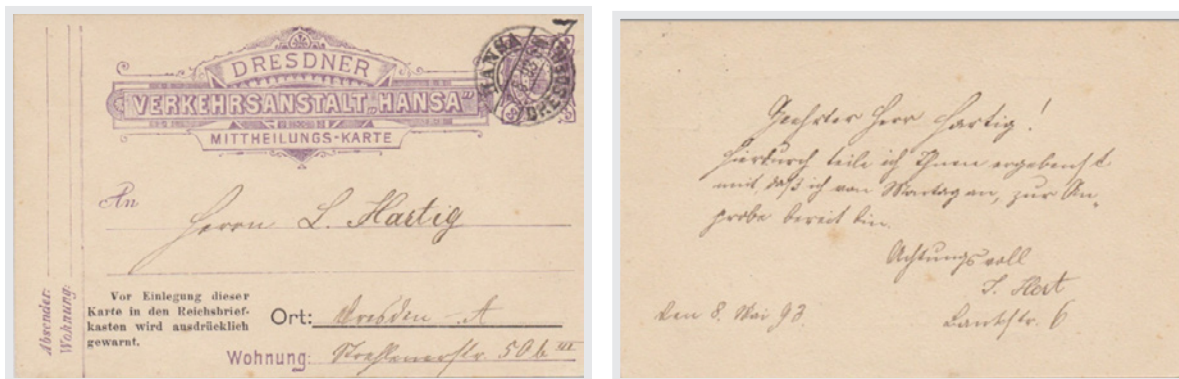 DRESDNER
VERKEHRSANSTALT „HANSA"
MITTHEILUNGS-KARTE
HANSA
DRESDEN
An
Herrn L. Hartig
Absender:
Wohnung:
Vor Einlegung dieser
Karte in den Reichsbrief-
kasten wird ausdrücklich
gewarnt.
Ort: Dresden - A
Wohnung: Strehlenerstr. 50b III
Geehrter Herr Hartig!
Hierdurch teile ich Ihnen ergebenst
mit, daß ich von Montag an, zur An-
probe bereit bin.
Achtungsvoll
den 8. Mai 93.
Bankstr. 6